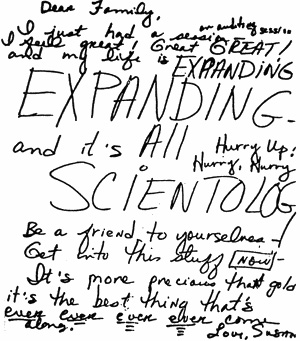 Dear Family,
I just had a session an auditing session
I feel great! Great GREAT!
and my life is EXPANDING
EXPANDING
and it's All
Hurry Up!
Hurry, Hurry
SCIENTOLOG
Be a friend to yourselves -
Get into this stuff NOW -
It's more precious than gold
it's the best thing that's
ever ever ever ever come
along.
Love, Susan